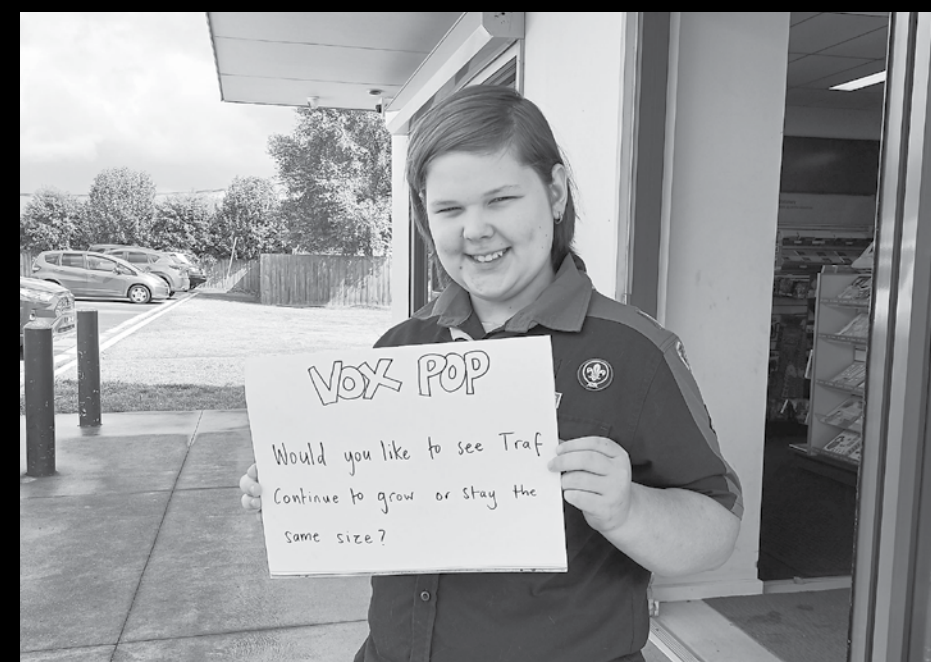 VOX POP
Would you like to see Traf
Continue to grow or stay the
same size?